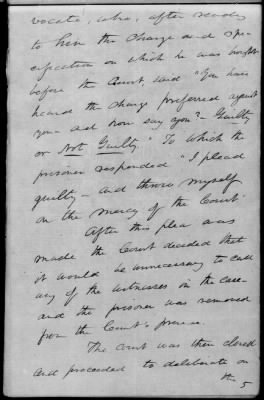 vocate, who, after reading
to him the charge and spe-
cification on which he was brought
before the Court, said "You have
heard the charge preferred against
you and how say you? Guilty
or Not Guilty." To which the
prisoner responded "I plead
guilty - and throw myself
on the mercy of the Court"
After this plea was
made the Court decided that
it would be unnecessary to call
any of the witnesses in the case -
and the prisoner was removed
from the Court's presence.
The Court was then closed
and proceeded to deliberate on
the 5